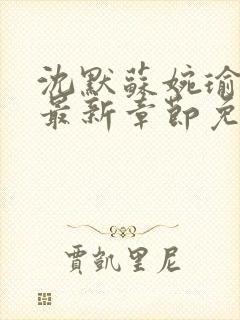 沈默蘇婉瑜
最新章節免
賈凱里尼